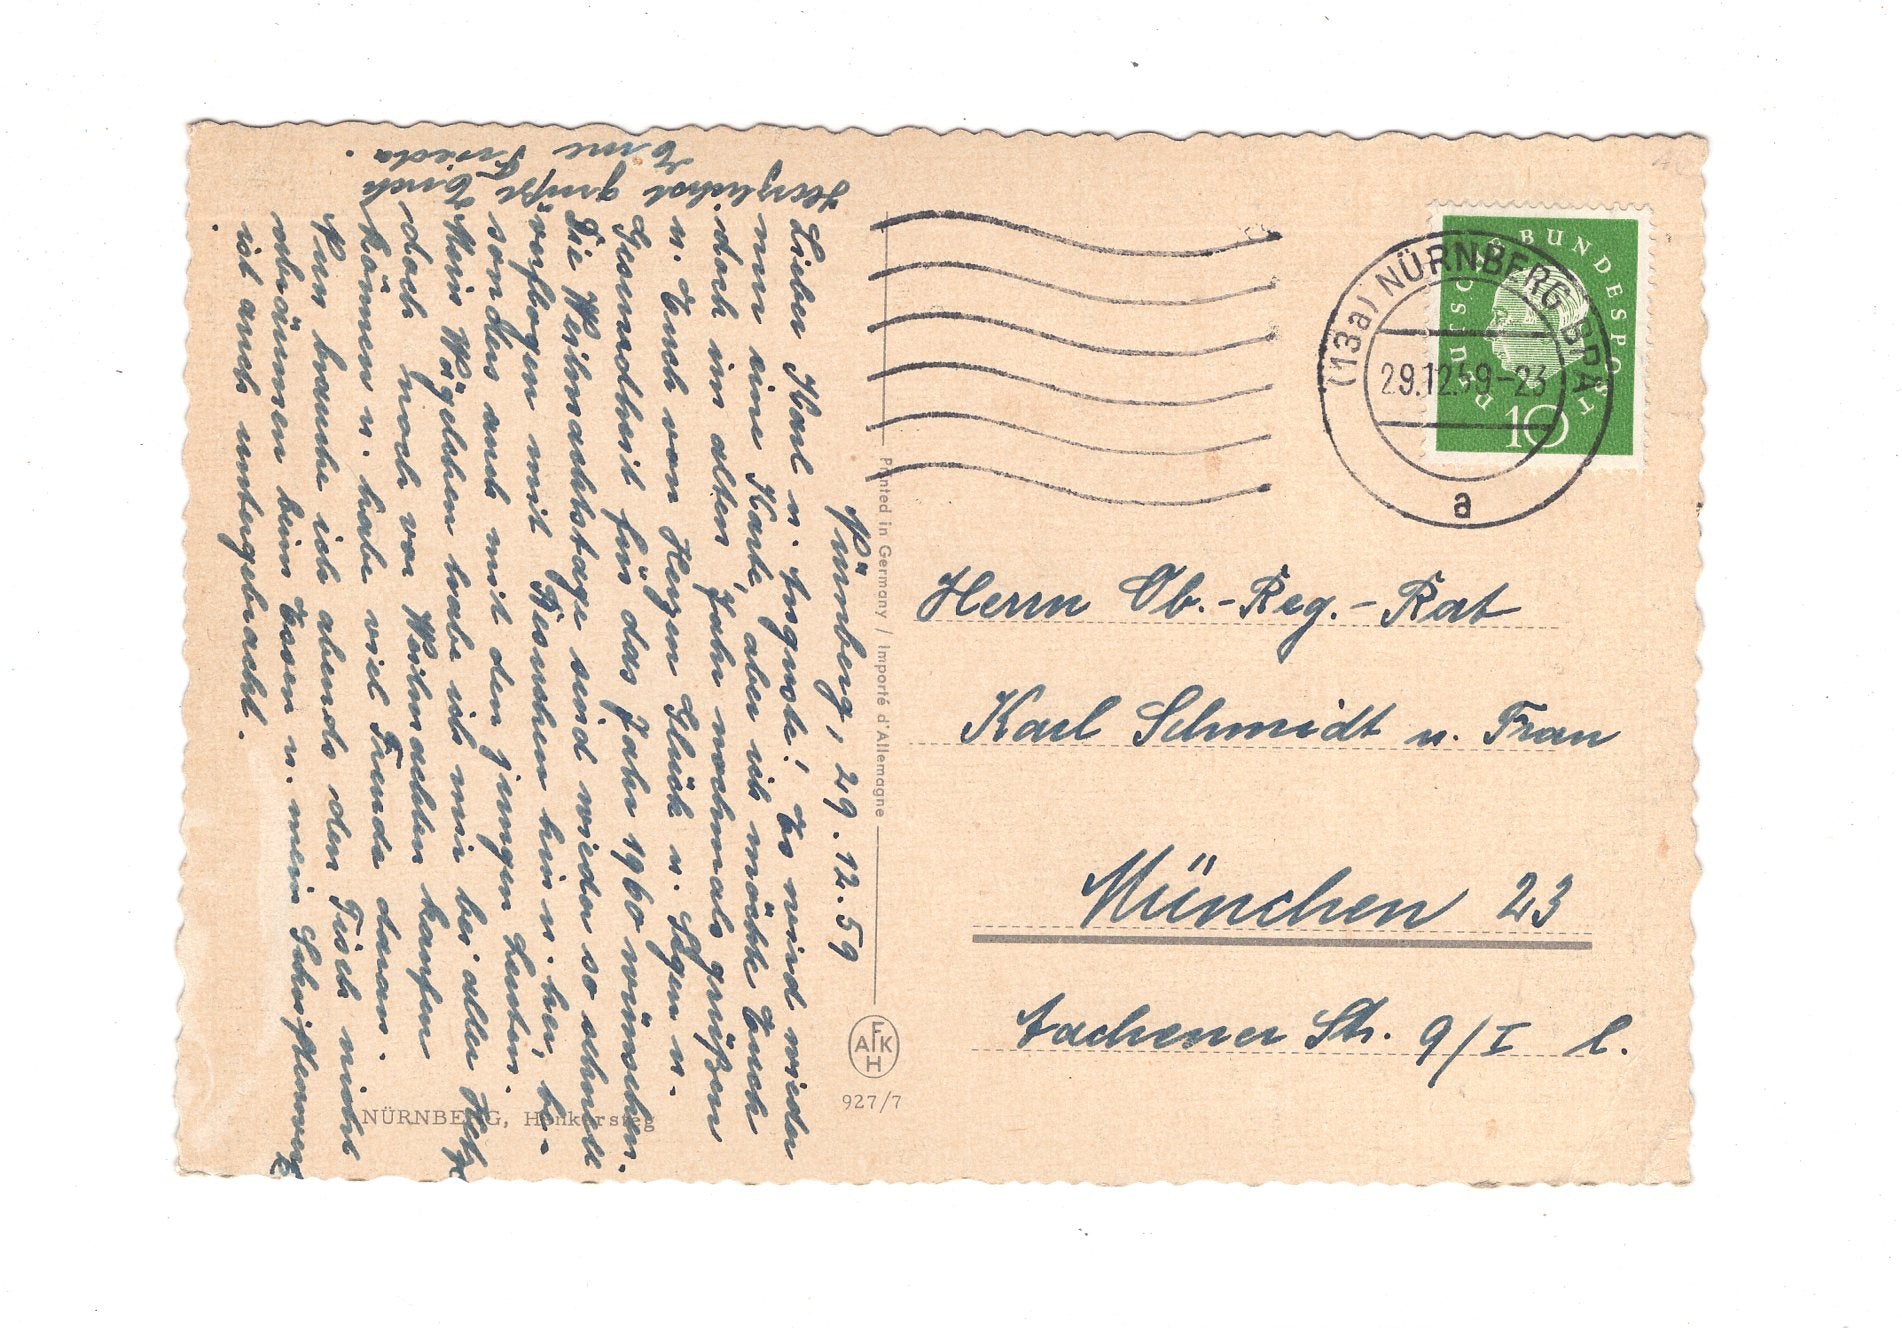 Nürnberg, 29.12.59
Lieber Karl u. Auguste! Es wird wieder
nur eine Karte, aber ich möchte Euch
doch im alten Jahr nochmals grüßen
u. Euch von Herzen Glück u. Segen u.
Gesundheit für das Jahr 1960 wünschen.
Die Weihnachtstage sind wieder so schnell
verflogen mit Besuchen hin u. her, be-
sonders auch mit den jungen Leuten.
Mein Wägelchen habe ich mir bei aller Hetze
doch noch vor Weihnachten kaufen
können u. habe viel Freude daran.
Nun brauche ich abends den Tisch nicht
abräumen beim Essen u. mein
ist auch untergebracht.
Herzlichst grüßt Euch
Eure Frieda.
Printed in Germany / Importé d'Allemagne
AFKH
927/7
NÜRNBERG, Henkersteg
DEUTSCHE BUNDESPOST
10
(13a) NÜRNBERG
29.12.59-23
a
Herrn Ob.-Reg.-Rat
Karl Schmidt u. Frau
München 23
Aachener Str. 9/I l.